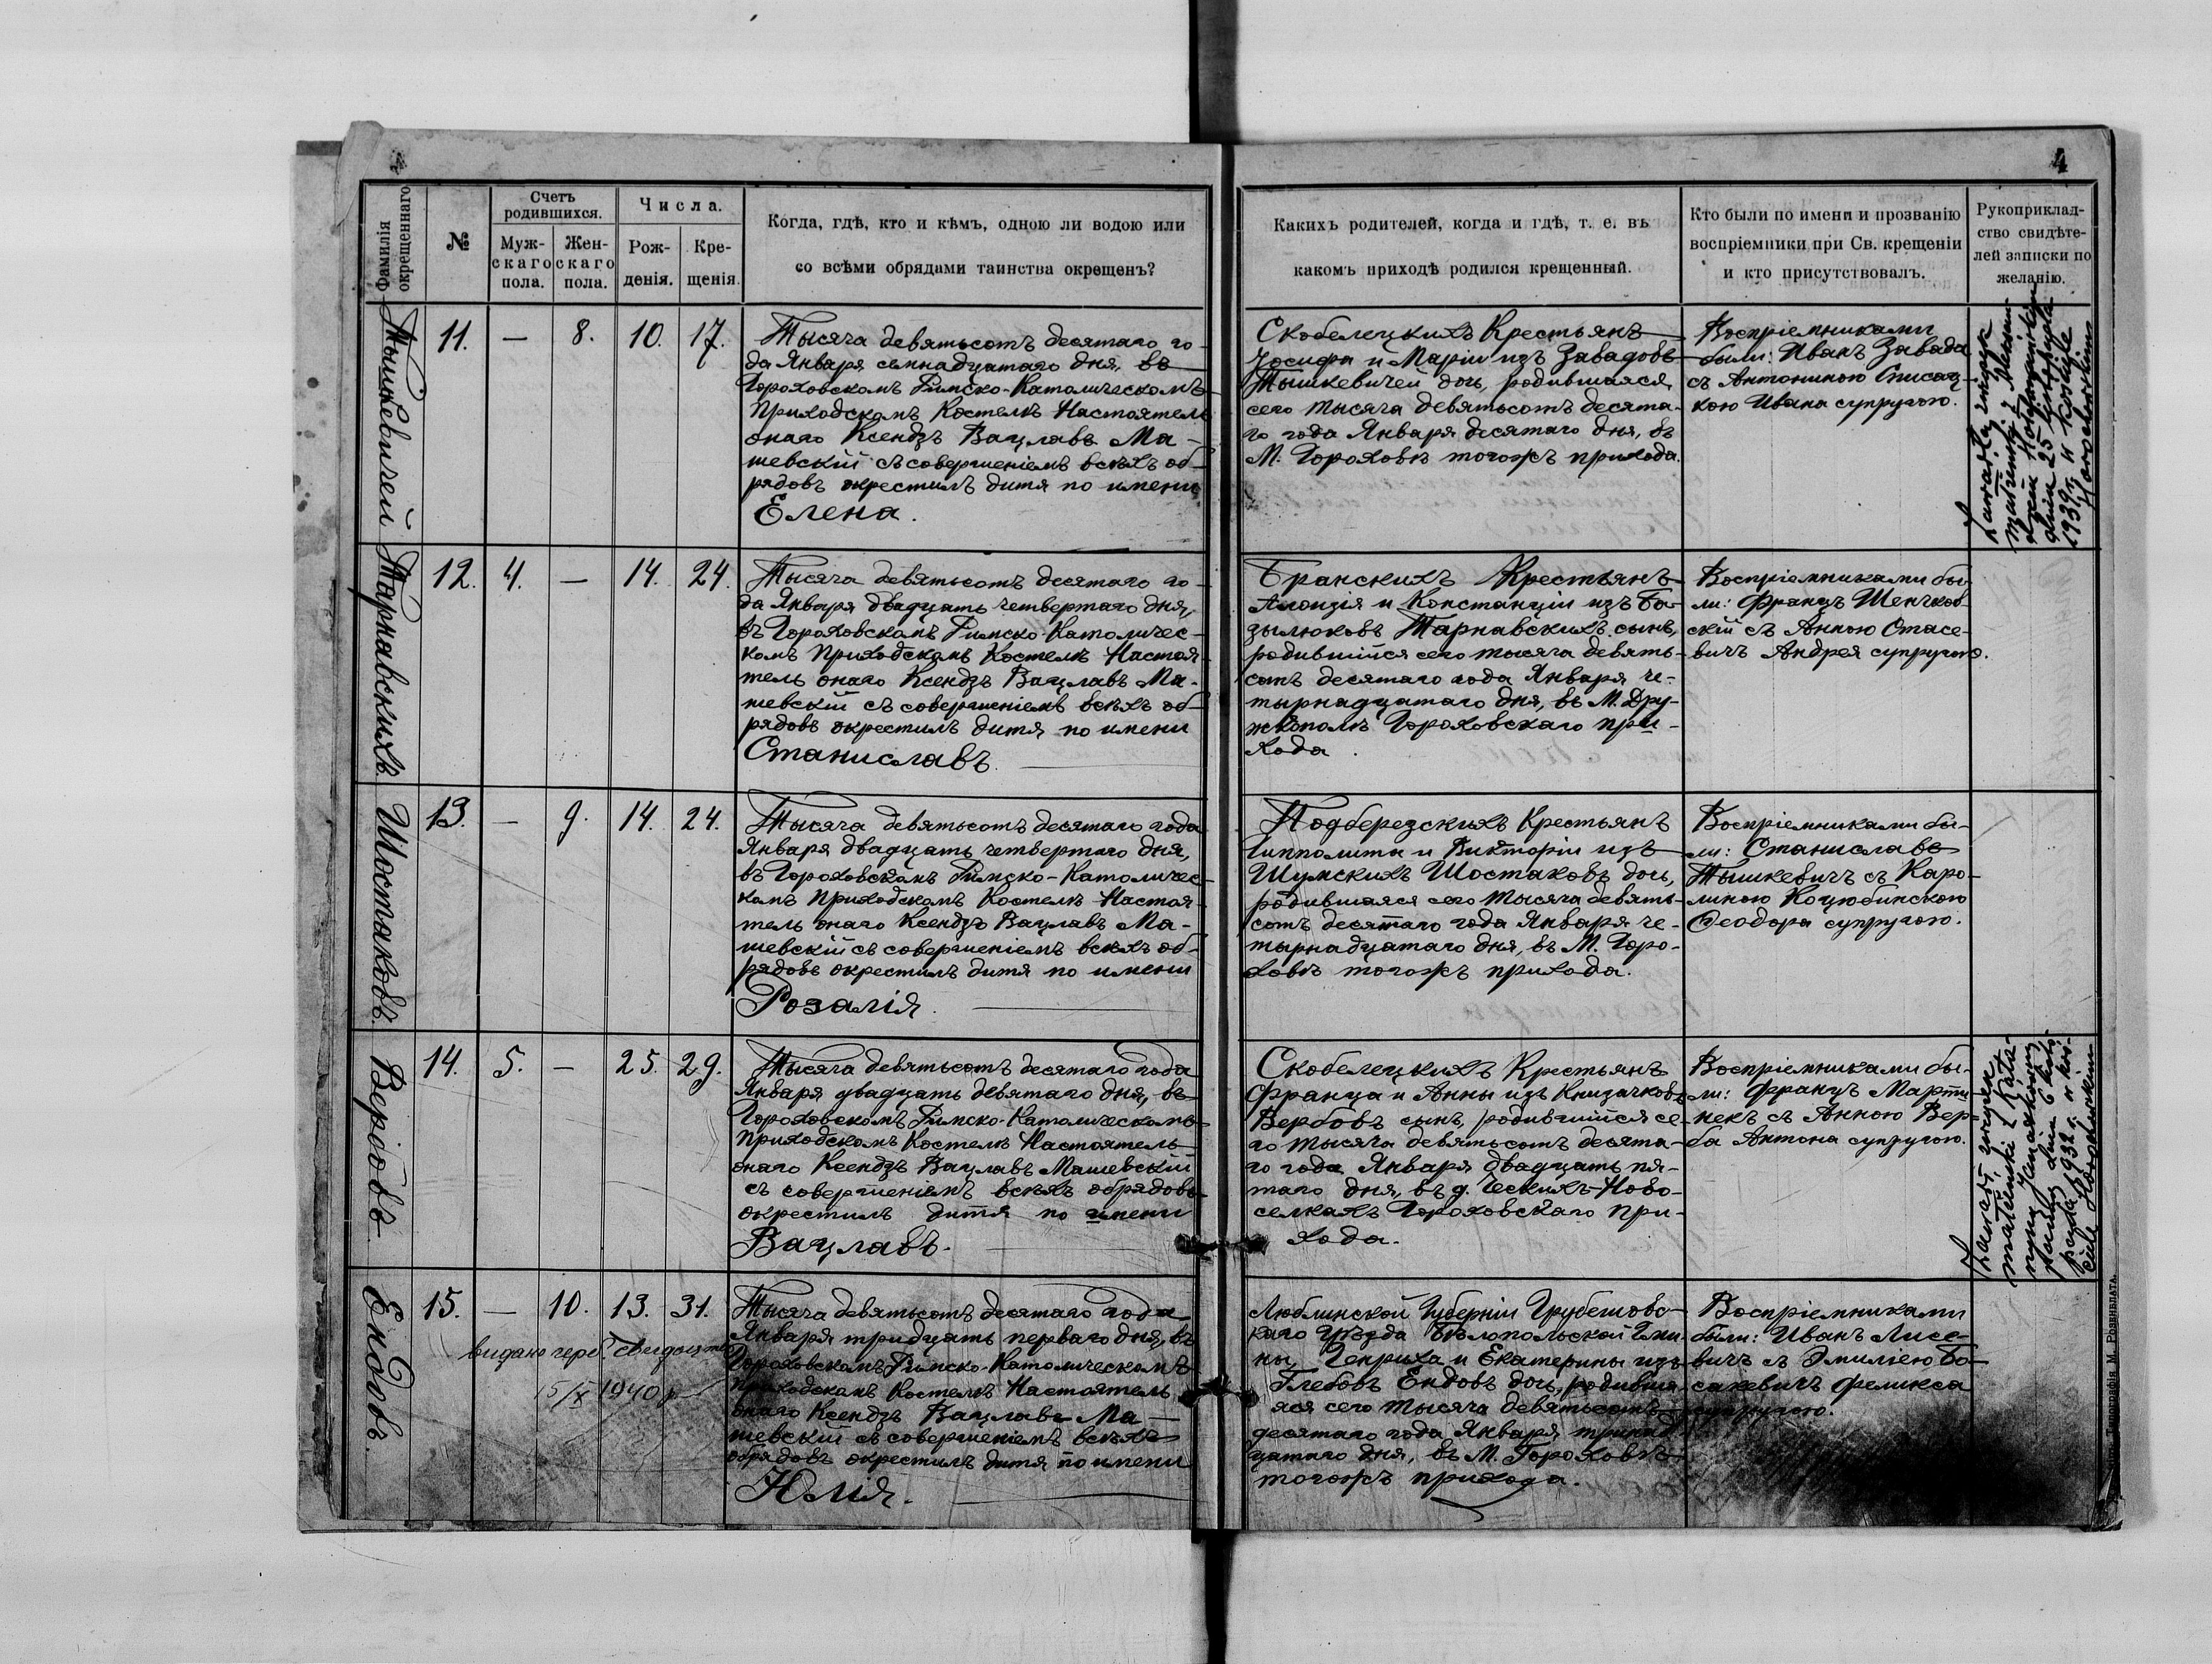 4
Фамилія
окрещеннаго
№
Счетъ
родившихся.
Муж-
скаго
пола.
Жен-
скаго
пола.
Числа.
Рож-
денія.
Кре-
щенія.
Когда, гдѣ, кто и кѣмъ, одною ли водою или
со всѣми обрядами таинства окрещенъ?
Какихъ родителей, когда и гдѣ, т. е. въ
какомъ приходѣ родился крещенный.
Кто были по имени и прозванію
воспріемники при Св. крещеніи
и кто присутствовалъ.
Рукоприклад-
ство свидѣте-
лей записки по
желанію.
Тышкевичей
11. — 8. 10. 17.
Тысяча девятьсотъ десятаго го-
да Января семнадцатаго дня, въ
Гороховскомъ Римско-Католическомъ
Приходскомъ Костелѣ Настоятель
онаго Ксендзъ Вацлавъ Ма-
шевскій съ совершеніемъ всѣхъ об-
рядовъ окрестилъ дитя по имени
Елена.
Скобелецкихъ Крестьянъ
Іосифа и Маріи изъ Завадовъ
Тышкевичей дочь, родившаяся
сего тысяча девятьсотъ десята-
го года Января десятаго дня, въ
М. Гороховѣ тогожъ прихода.
Воспріемниками
были: Иванъ Завада
съ Антониною
Ивана супругою.
Zawarła związek
małżeński z
dnia 25 listopada
1939 r. w kościele
Horochowskim
Тарнавскихъ
12. 4. — 14. 24.
Тысяча девятьсотъ десятаго го-
да Января двадцать четвертаго дня,
въ Гороховскомъ Римско-Католичес-
комъ Приходскомъ Костелѣ Настоя-
тель онаго Ксендзъ Вацлавъ Ма-
шевскій съ совершеніемъ всѣхъ об-
рядовъ окрестилъ дитя по имени
Станиславъ.
Бранскихъ Крестьянъ
Алоизія и Констанціи изъ Ба-
зылюковъ Тарнавскихъ сынъ,
родившійся сего тысяча девять-
сотъ десятаго года Января че-
тырнадцатаго дня, въ М. Дру-
жкополѣ Гороховскаго при-
хода.
Воспріемниками бы-
ли: Францъ Шенчков-
скій съ Анною Стасе-
вичъ Андрея супругою.
Шостаковъ.
13. — 9. 14. 24.
Тысяча девятьсотъ десятаго года
Января двадцать четвертаго дня,
въ Гороховскомъ Римско-Католичес-
комъ Приходскомъ Костелѣ Настоя-
тель онаго Ксендзъ Вацлавъ Ма-
шевскій съ совершеніемъ всѣхъ об-
рядовъ окрестилъ дитя по имени
Розалія.
Подберезскихъ Крестьянъ
Ипполита и Викторіи изъ
Шумскихъ Шостаковъ дочь,
родившаяся сего тысяча девять-
сотъ десятаго года Января че-
тырнадцатаго дня, въ М. Горо-
ховѣ тогожъ прихода.
Воспріемниками бы-
ли: Станиславъ
Тышкевичъ съ Каро-
линою Коцюбинскою
Ѳеодора супругою.
Вербовъ
14. 5. — 25. 29.
Тысяча девятьсотъ десятаго года
Января двадцать девятаго дня, въ
Гороховскомъ Римско-Католическомъ
Приходскомъ Костелѣ Настоятель
онаго Ксендзъ Вацлавъ Машевскій
съ совершеніемъ всѣхъ обрядовъ
окрестилъ дитя по имени
Вацлавъ.
Скобелецкихъ Крестьянъ
Франца и Анны изъ Князачковъ
Вербовъ сынъ, родившійся се-
го тысяча девятьсотъ десята-
го года Января двадцать пя-
таго дня, въ д. Ческихъ-Ново-
селкахъ Гороховскаго при-
хода.
Воспріемниками бы-
ли: Францъ Марты-
некъ съ Анною Вер-
ба Антона супругою.
Zawarł związek
małżeński z Kata-
rzyną
dnia 6
1932 r. w koś-
ciele Horochowskim
Ендовъ.
15. — 10. 13. 31.
видано
15/X 1940 р
Тысяча девятьсотъ десятаго года
Января тридцать перваго дня, въ
Гороховскомъ Римско-Католическомъ
Приходскомъ Костелѣ Настоятель
онаго Ксендзъ Вацлавъ Ма-
шевскій съ совершеніемъ всѣхъ
обрядовъ окрестилъ дитя по имени
Юлія.
Люблинской Губерніи Грубешовс-
каго уѣзда Бѣлопольской Гми-
ны, Генриха и Екатерины изъ
Глебовъ Ендовъ дочь, родивша-
яся сего тысяча девятьсотъ
десятаго года Января тринад-
цатаго дня, въ М. Гороховѣ
тогожъ прихода.
Воспріемниками
были: Иванъ Лисе-
вичъ съ Эмиліею Бо-
сакевичъ Феликса
супругою.
Типографія М. Розенблата.